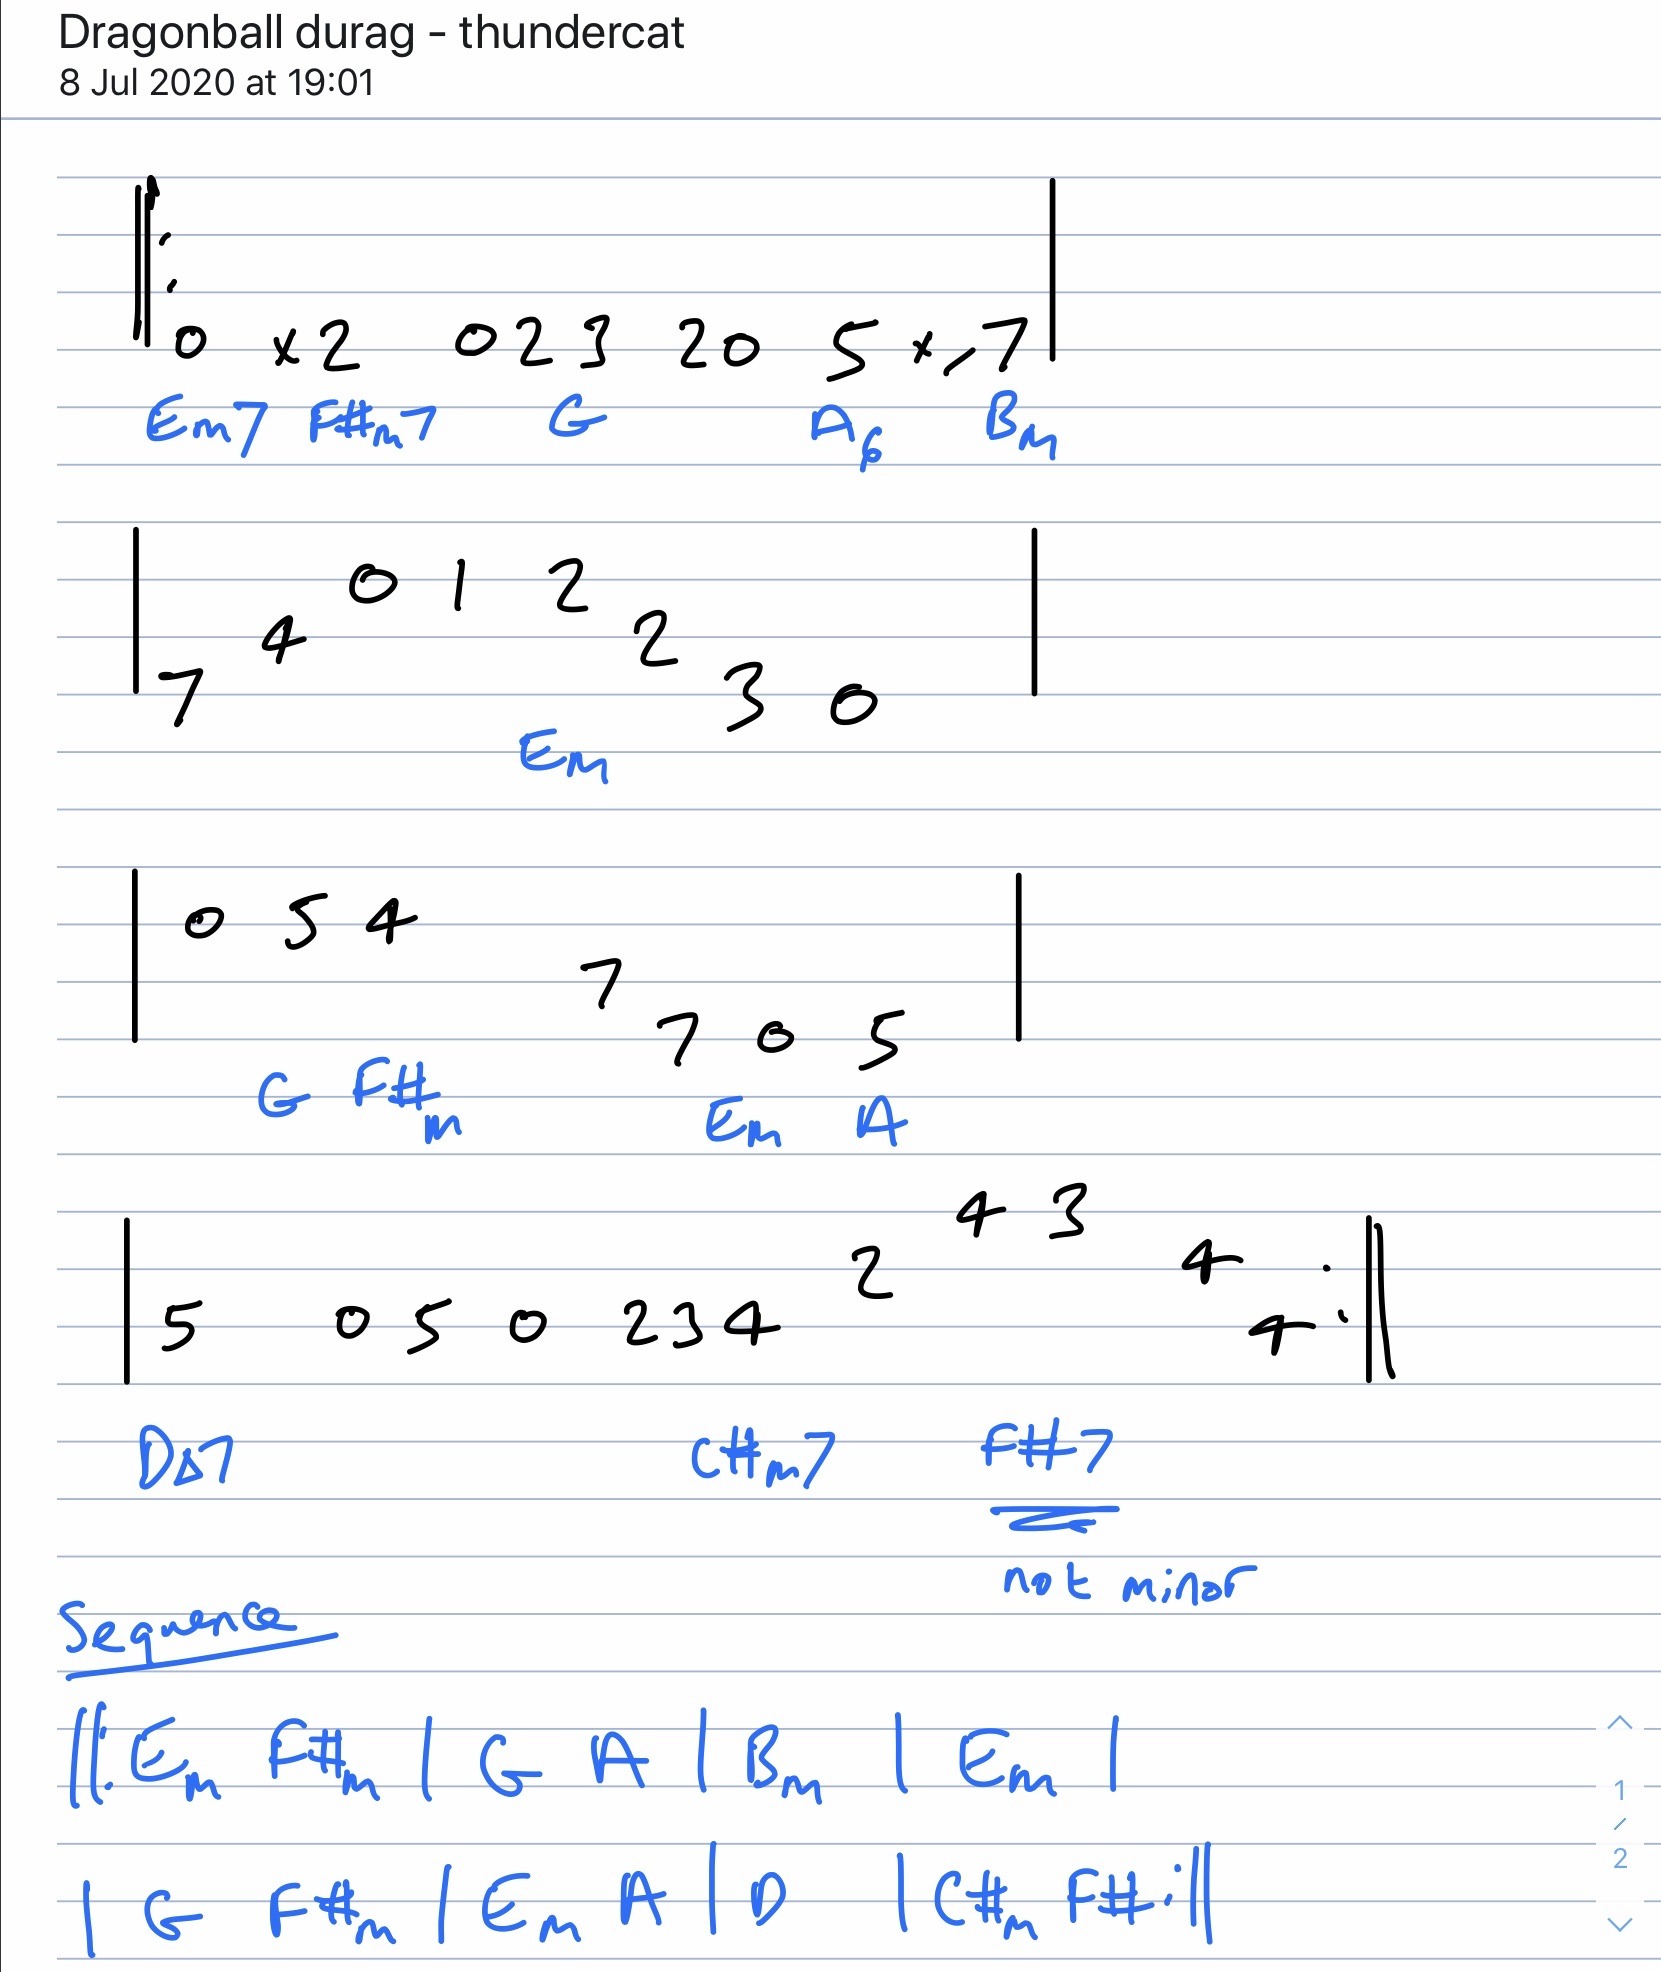 Dragonball durag - thundercat
8 Jul 2020 at 19:01
||: 0 x 2 0 2 3 2 0 5 x / 7 |
Em7 F#m7 G A6 Bm
| 7 4 0 1 2 2 3 0 |
Em
| 0 5 4 7 7 0 5 |
G F#m Em A
| 5 0 5 0 2 3 4 2 4 3 4 4 :||
D△7 C#m7 F#7
not minor
Sequence
||: Em F#m | G A | Bm | Em |
| G F#m | Em A | D | C#m F# :||
1
/
2